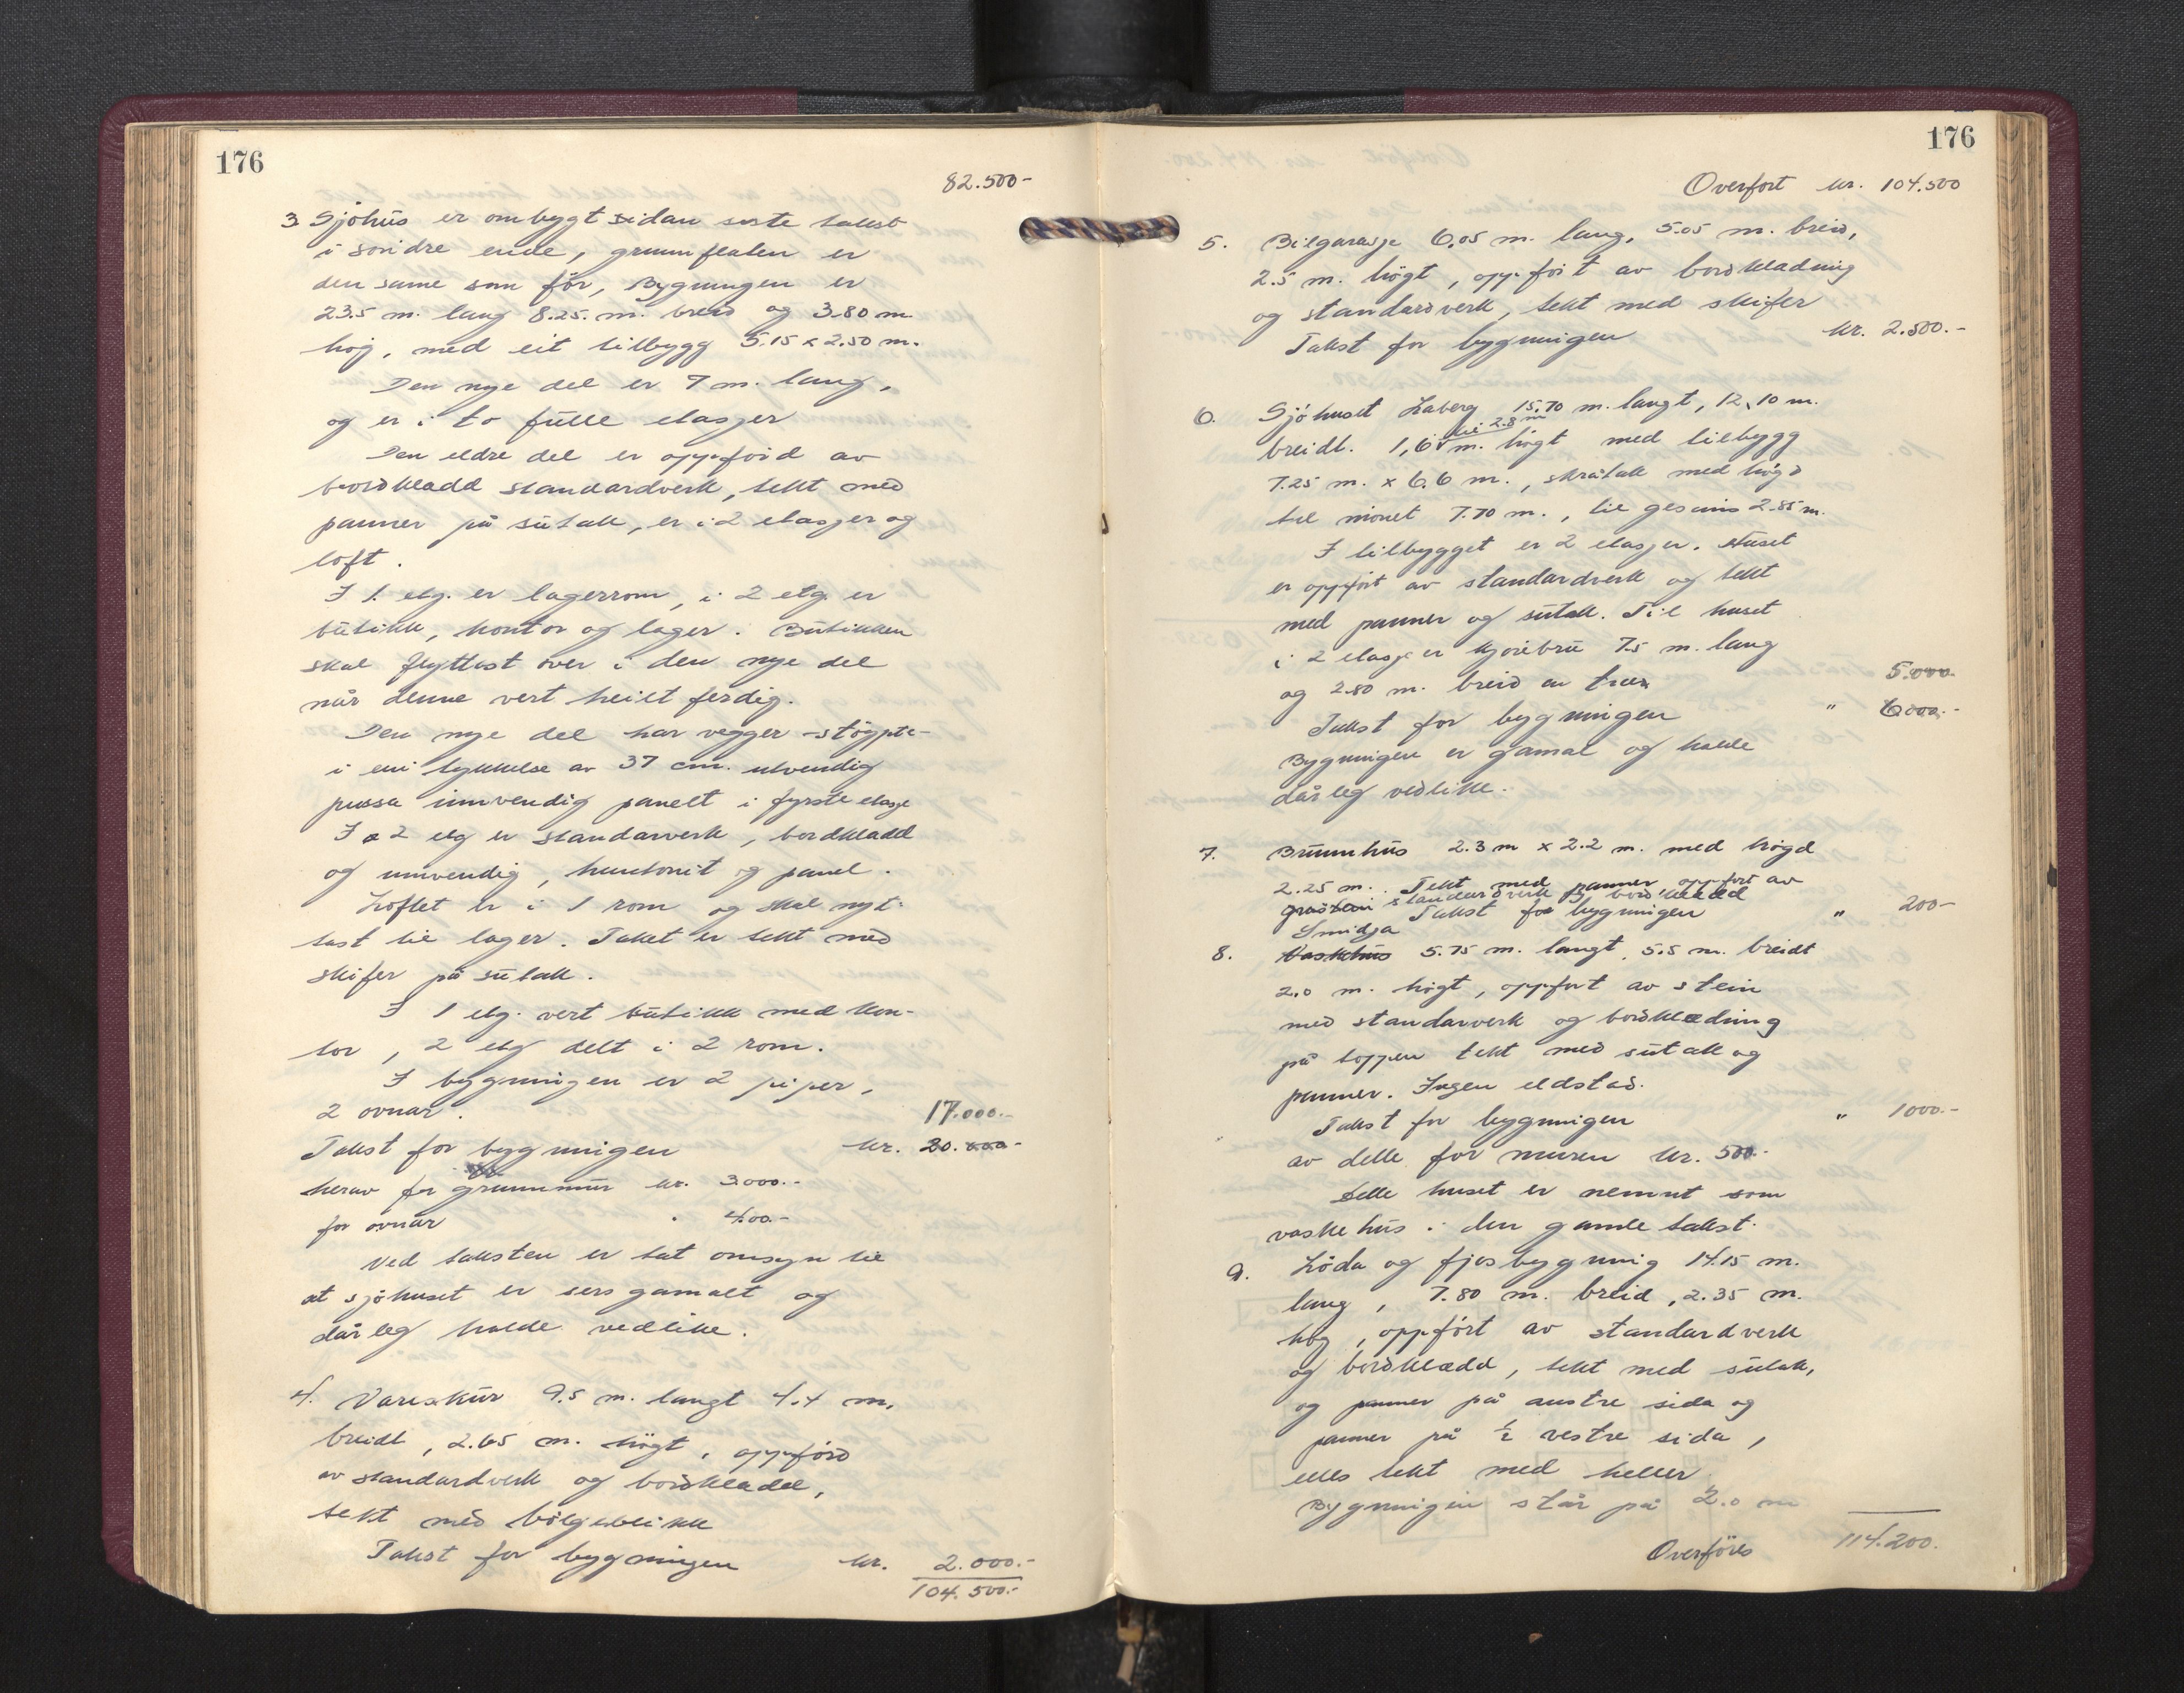 176
82.500-
3 Sjöhus er ombygt sidan siste takst
i söndre ende, grunnflaten er
den same som för, Bygningen er
23.5 m. lang 8.25. m. breid og 3.80 m
höj, med eit tilbygg 5.15 x 2.50 m.
Den nye del er 7 m. lang,
og er i to fulle etasjer
Den eldre del er oppförd av
bordkledd standardverk, tekt med
panner på sutak, er i 2 etasjer og
loft.
I 1. etg. er lagerrom, i 2 etg. er
butikk, kontor og lager. Butikken
skal flyttast over i den nye del
når denne vert heilt ferdig.
Den nye del har vegger - stöypte -
i ein tykkelse av 37 cm. utvendig
pussa innvendig panelt i fyrste etasje
I 2 etg er standarverk, bordkledd
og innvendig, huntonit og panel.
Loftet er i 1 rom og skal nyt-
tast til lager. Taket er tekt med
skifer på sutak.
I 1 etg. vert butikk med kon-
tor, 2 etg delt i 2 rom.
I bygningen er 2 piper,
2 ovnar.
17.000.-
Takst for bygningen kr. 20.000-
herav for grunnmur kr. 3000.-
for ovnar " 400-
Ved taksten er tat omsyn til
at sjöhuset er sers gamalt og
dårleg halde vedlike.
4. Vareskur 9.5 m. langt 4.4 m.
breidt, 2.65 m. högt, oppförd
av standardverk og bordkledd,
tekt med bölgeblikk
Takst for bygningen kr. 2.000.-
104.500.-
176
Overfört kr. 104.500
5. Bilgarasje 6.05 m. lang, 5.05 m. breid,
2.5 m. högt, oppfört av bordkledning
og standardverk, tekt med skifer
Takst for bygningen kr. 2.500.-
6. Sjöhuset Laberg 15.70 m. langt, 12,10 m.
til 2.8 m
breidt. 1,6 m. högt med tilbygg
7.25 m. x 6.6 m., skråtak med högd
til mönet 7.70 m., til gesims 2.85 m.
I tilbygget er 2 etasjer. Huset
er oppfört av standardverk og tekt
med panner og sutak. Til huset
i 2 etasje er kjörebru 7.5 m. lang
og 2.80 m. breid av tre
5.000-
Takst for bygningen " 6000.-
Bygningen er gamal og halde
dårleg vedlike.
7. Brunnhus 2.3 m x 2.2 m. med högd
2.25 m. Tekt med panner oppfört av
gråstein standardverk og bordkledd
Takst for bygningen " 200-
Smidja
8. Vaskehus 5.75 m. langt, 5.5 m. breidt
2.0 m. högt, oppfört av stein
med standarverk og bordkledning
på toppen tekt med sutak og
panner. Ingen eldstad.
Takst for bygningen " 1000.-
av dette for muren kr. 500.-
Dette huset er nemnt som
vaskehus i den gamle takst.
9. Löda og fjosbygning 14.15 m.
lang, 7.80 m. breid, 2.35 m.
hög, oppfört av standardverk
og bordkledd, tekt med sutak,
og panner på austre sida og
panner på ½ vestre sida,
elles tekt med heller
Bygningen står på 2.0 m
Overföres 114.200.